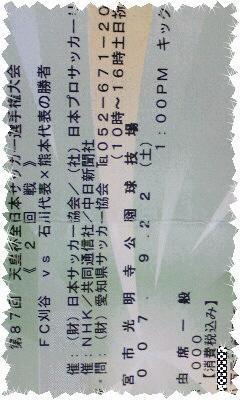 第87回 天皇杯全日本サッカー選手権大会
《 2 回 戦 》
FC刈谷 vs 石川代表×熊本代表の勝者
催:(財)日本サッカー協会/(社)日本プロサッカー
催:NHK/共同通信社/中日新聞社
・問:愛知県サッカー協会 ℡052-671-20
(10時~16時土日祝
宮市光明寺公園球技場
007. 9.22(土) 1:00PM キック
由席一般
000
【消費税込み】